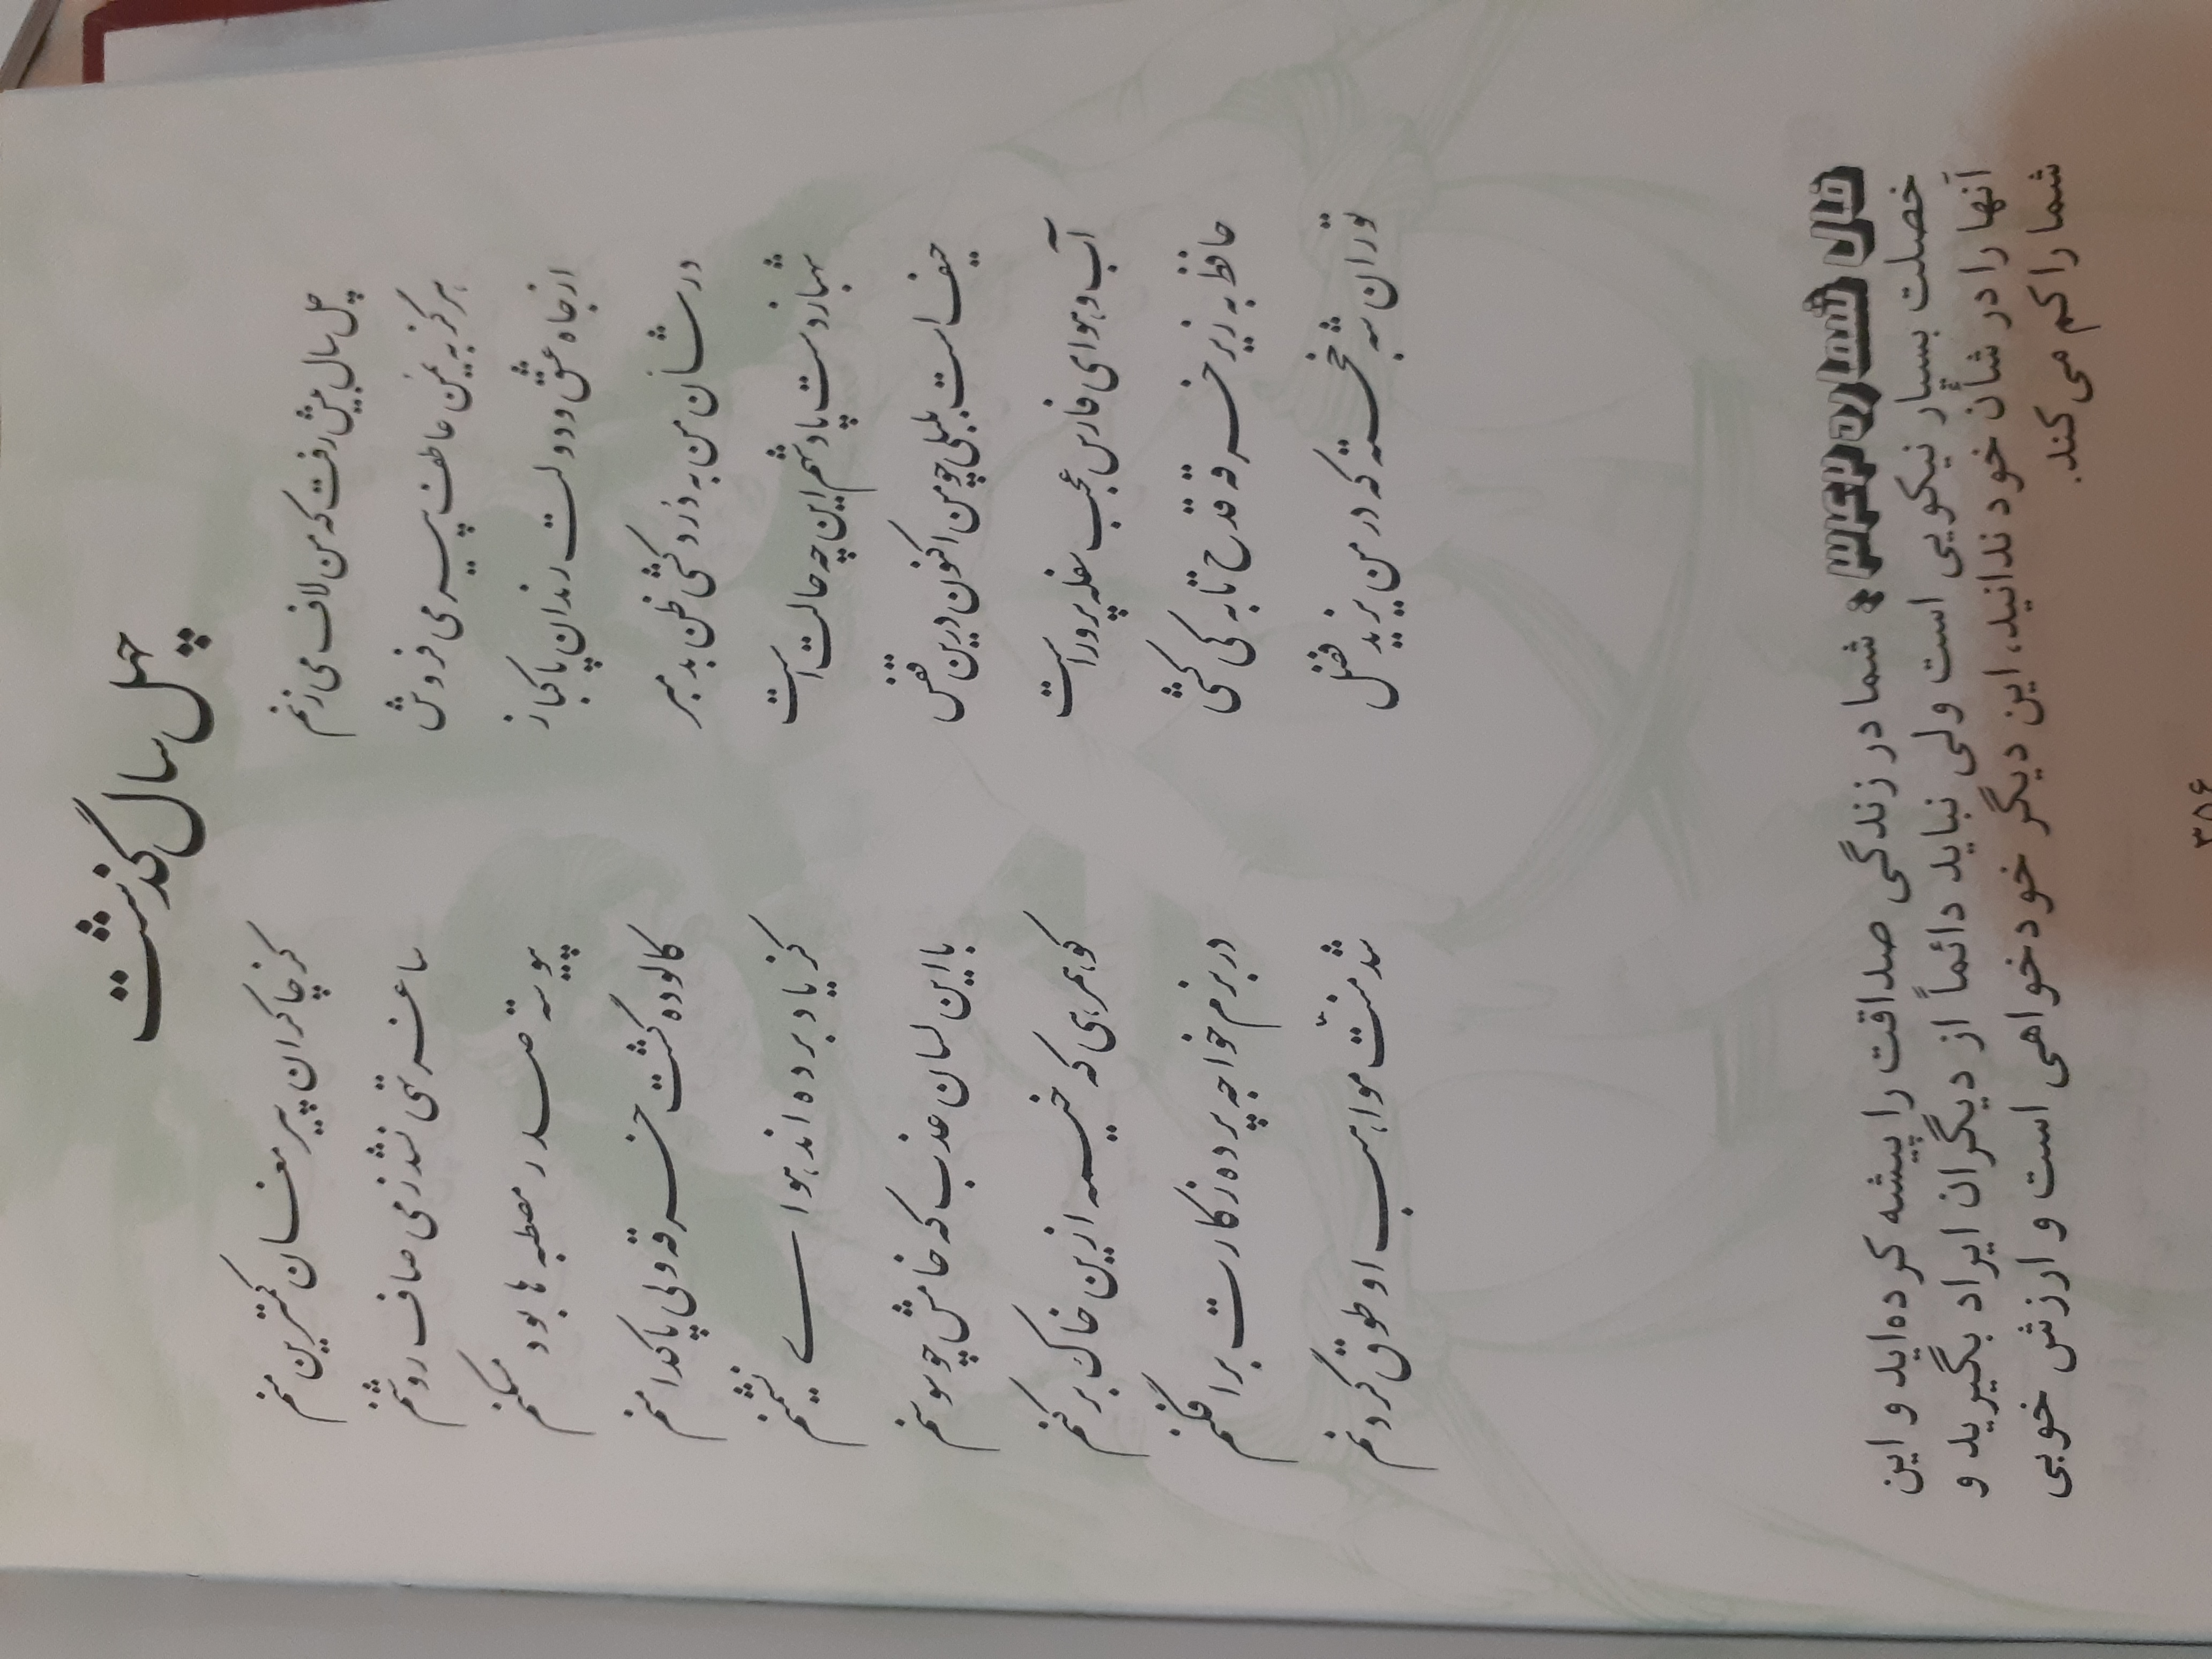 چهل سال گذشت
چل سال پیش رفت که من لاف می زنم کز چاکران پیر مغان کمترین منم
هرگز به یمن عاطفت پیر می فروش ساغر تهی نشد ز می صاف روشنم
از جاه عشق و دولت رندان پاکباز پیوسته صدر مصطبه ها بود مسکنم
در شأن من به دُرد کشی ظن بد مبر کالوده گشت خرقه ولی پاکدامنم
شهباز دست پادشهم این چه حالت است کز یاد برده اند هوای نشیمنم
حیف است بلبلی چو من اکنون درین قفس با این لسان عذب که خامش چو سوسنم
آب و هوای فارس عجب سفله پرور است کو همرهی که خیمه از این خاک برکنم
حافظ به زیر خرقه قدح تا به کی کشی در بزم خواجه پرده ز کارت برافکنم
توران شه خجسته که در من یزید فضل شد منّت مواهب او طوق گردنم
فال شماره ۳۴۳: شما در زندگی صداقت را پیشه کرده‌اید و این
خصلت بسیار نیکویی است ولی نباید دائماً از دیگران ایراد بگیرید و
آنها را در شأن خود ندانید، این دیگر خودخواهی است و ارزش خوبی
شما را کم می کند.
۳۵۶